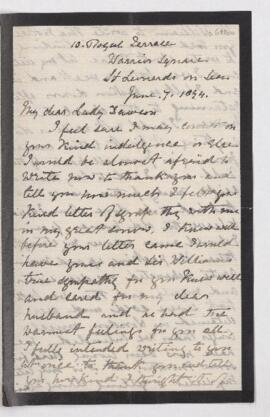 10. Royal Terrace
Warrior Square
St Leonards on Sea
June. 7. 1894.
My dear Lady Dawson
I feel sure I may count on
your kind indulgence or else
I would be almost afraid to
write now to thank you and
tell you how much I felt your
kind letter of sympathy with me
in my great sorrow. I knew well
before your letter came I would
have yours and Sir William's
true sympathy for you knew well
and cared for my dear
husband and he had the
warmest feelings for you all.
I fully intended writing to you
at once to thank you and tell
you